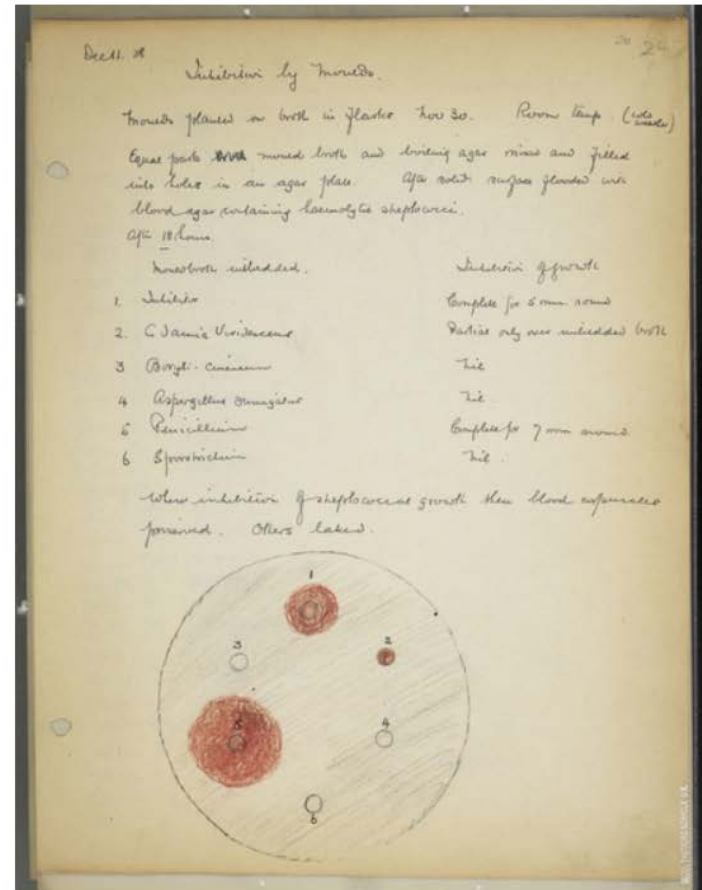 20 24
Dec 11. 28
Inhibition by moulds.
Moulds planted on broth in flasks Nov 30. Room temp. (cold
weather)
Equal parts mould broth and boiling agar mixed and filled
into holes in an agar plate. After solid surface flooded with
blood agar containing haemolytic streptococci.
After 18 hours.
Mould broth embedded. Inhibition of growth
1. Inhibitor Complete for 5 mm round
2. Viridescens Partial only over embedded broth
3 cinereum nil
4 Aspergillus fumigatus nil.
5 Penicillium Complete for 7 mm around.
6 Sporotrichum nil.
Where inhibition of streptococcal growth then blood corpuscles
preserved. Others laked.
1
3
2
5
4
6